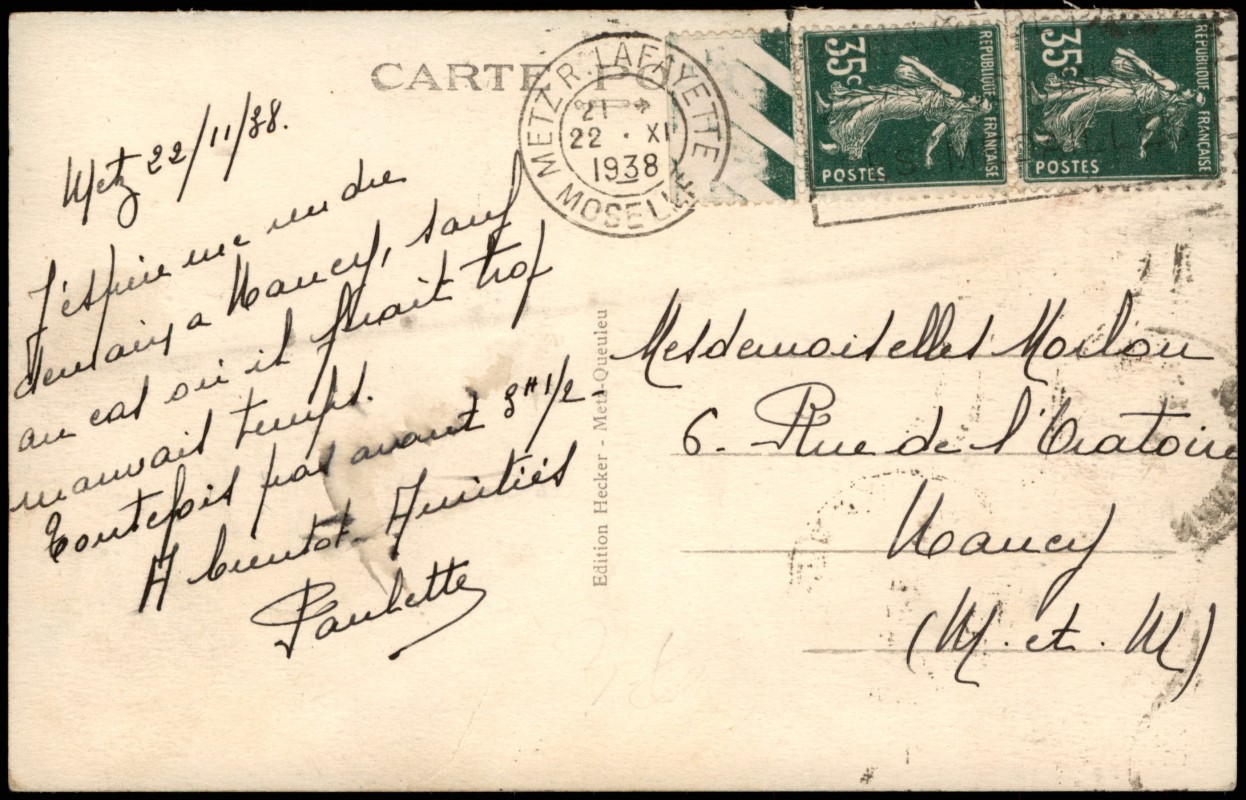 CARTE PO
METZ R. LAFAYETTE
21
22 · XI
1938
MOSELLE
35c
REPUBLIQUE FRANÇAISE
POSTES
35c
REPUBLIQUE FRANÇAISE
POSTES
Metz 22/11/38.
J'espère me rendre
demain a Nancy, sauf
au cas où il ferait trop
mauvais temps.
Toutefois pas avant 3H 1/2
A bientôt. Amitiés
Paulette
Edition Hecker - Metz-Queuleu
Mesdemoiselles
6. Rue de l'Oratoire
Nancy
(M. et. M)